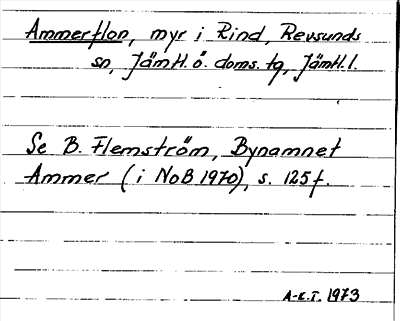 Ammerflon, myr i Rind, Revsunds
sn, Jämtl. ö. doms. tg, Jämtl. l.
Se B. Flemström, Bynamnet
Ammer (i NoB 1970), s. 125 f.
A-C.T. 1973